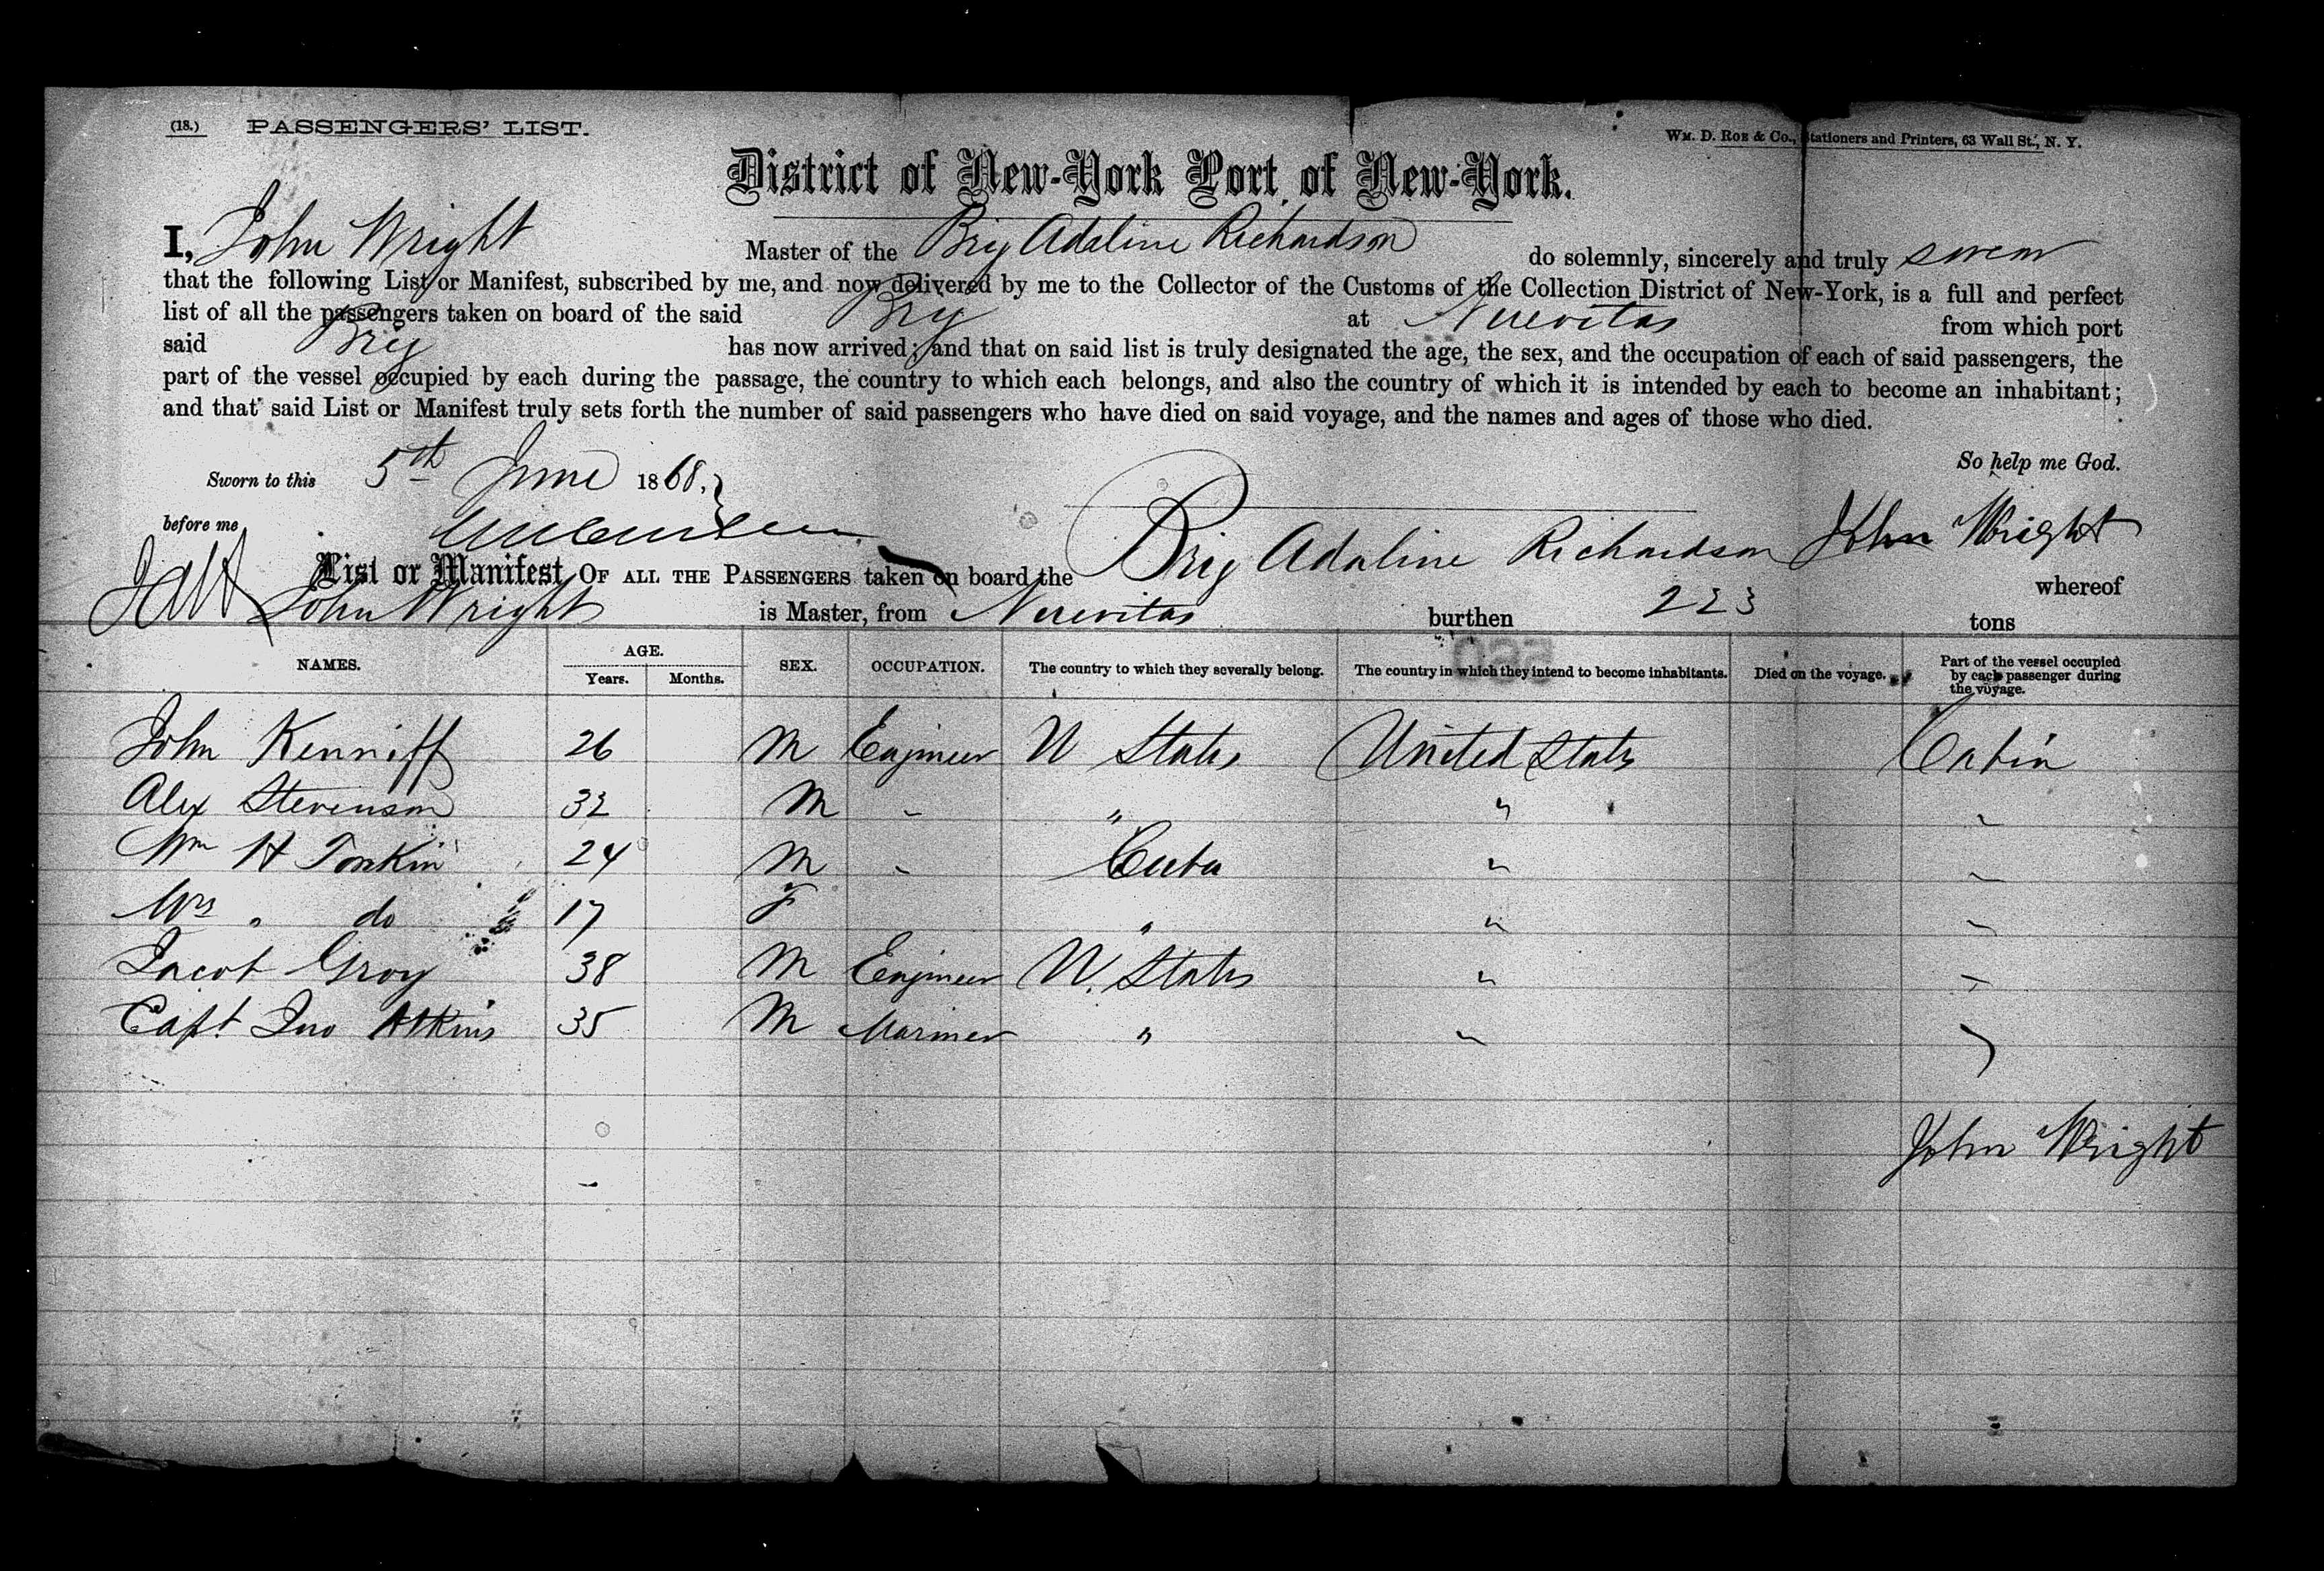 (18.) PASSENGERS' LIST.
WM. D. ROE & Co., Stationers and Printers, 63 Wall St., N. Y.
District of New-York Port of New-York.
I, John Wright Master of the Brig Adaline Richardson do solemnly, sincerely and truly swear
that the following List or Manifest, subscribed by me, and now delivered by me to the Collector of the Customs of the Collection District of New-York, is a full and perfect
list of all the passengers taken on board of the said Brig at Nuevitas from which port
said Brig has now arrived; and that on said list is truly designated the age, the sex, and the occupation of each of said passengers, the
part of the vessel occupied by each during the passage, the country to which each belongs, and also the country of which it is intended by each to become an inhabitant;
and that said List or Manifest truly sets forth the number of said passengers who have died on said voyage, and the names and ages of those who died.
So help me God.
Sworn to this 5th June 1868,
before me
John Wright
List or Manifest OF ALL THE PASSENGERS taken on board the Brig Adaline Richardson whereof
John Wright is Master, from Nuevitas burthen 223 tons
NAMES. AGE. Years. Months. SEX. OCCUPATION. The country to which they severally belong. The country in which they intend to become inhabitants. Died on the voyage. Part of the vessel occupied by each passenger during the voyage.
John Kenniff 26 M Engineer U States United States Cabin
Alex Stevenson 32 M " " " "
Wm H Tonkin 24 M " Cuba " "
Mrs " do 17 F " " "
Jacob Groy 38 M Engineer U. States " "
Capt. Jno Atkins 35 M Mariner " "
John Wright